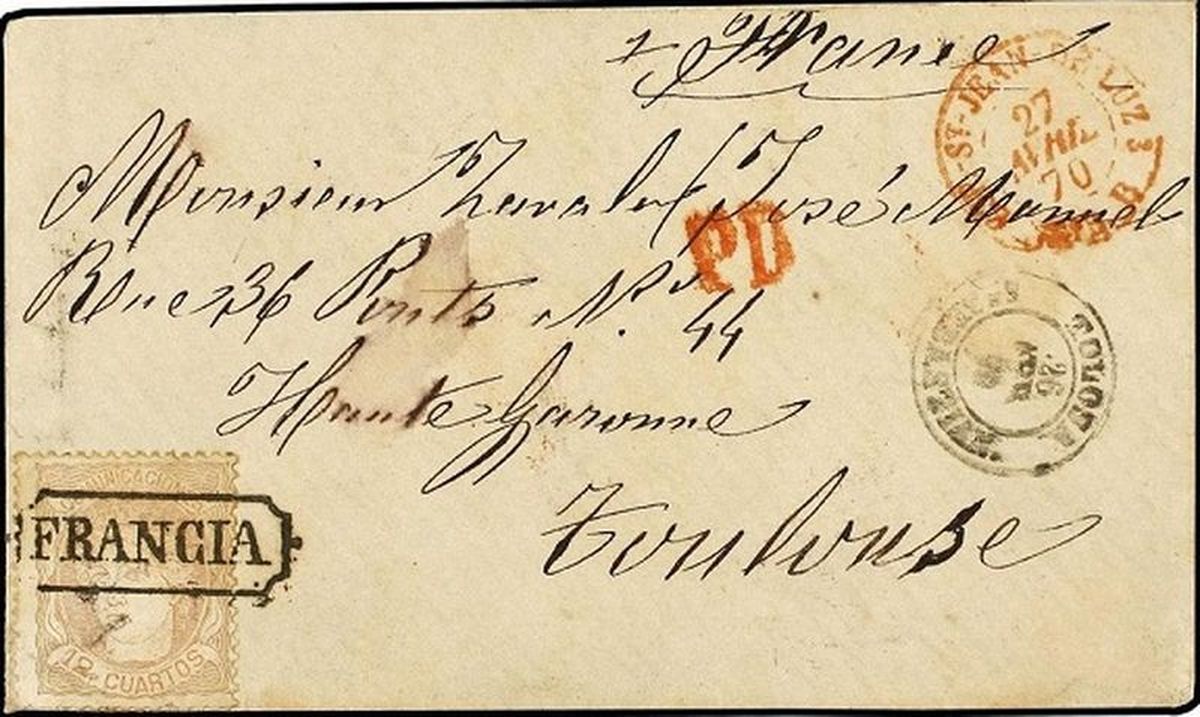 France
Monsieur Zavala (José Manuel
Rue 36 Ponts Nº 44
Haute Garonne
Toulouse
ST-JEAN DE LUZ
27
AVRIL
70
PD
TOLOSA
26
FRANCIA
12 CUARTOS